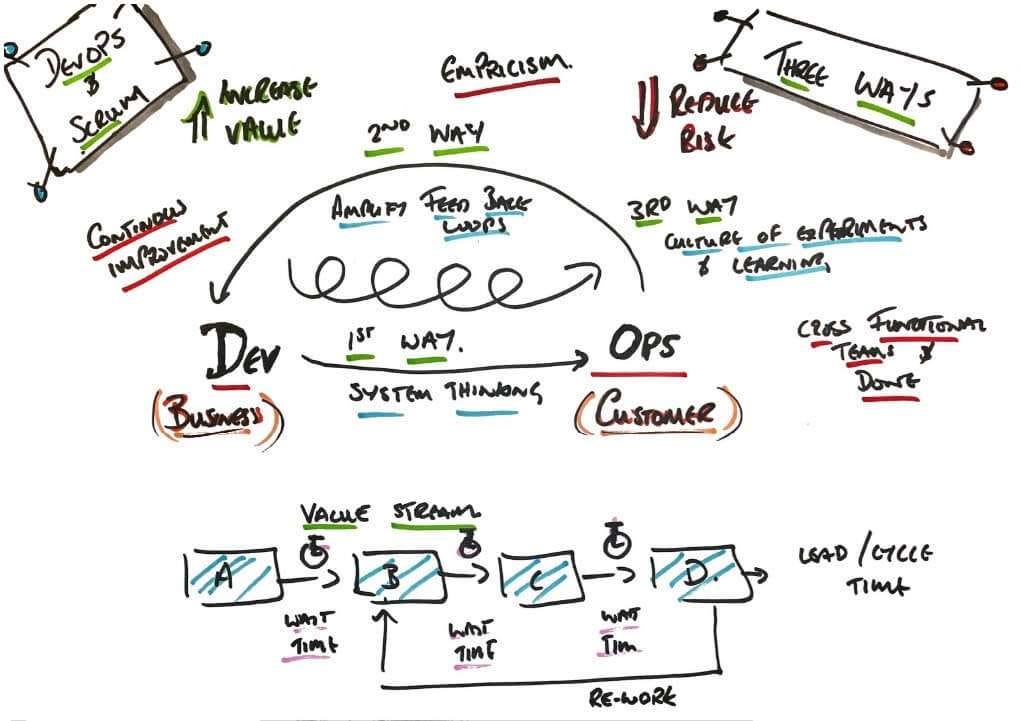 DEVOPS
&
SCRUM
INCREASE
VALUE
EMPRICISM.
REDUCE
RISK
THREE WAYS
2ND WAY
AMPLIFY FEED BACK
LOOPS
3RD WAY
CULTURE OF EXPERIMENTS
& LEARNING
CONTINOUS
IMPROVEMENT
DEV
(BUSINESS)
1ST WAY.
SYSTEM THINKING
OPS
(CUSTOMER)
CROSS FUNCTIONAL
TEAMS &
DONE
VALUE STREAM
A
B
C
D.
LEAD/CYCLE
TIME
WAIT
TIME
WAIT
TIME
WAIT
TIM
RE-WORK